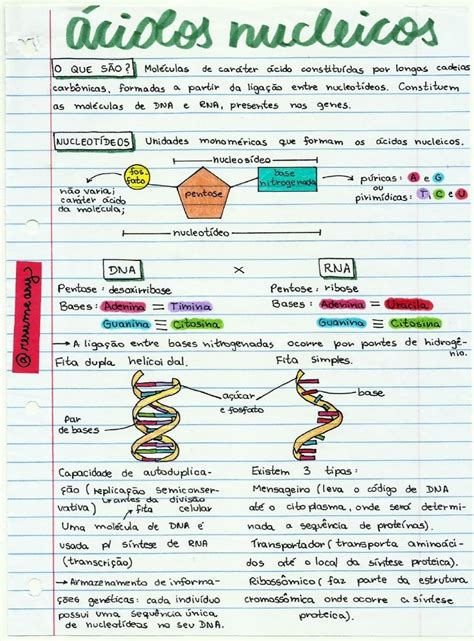 ácidos nucleicos
O QUE SÃO? Moléculas de caráter ácido constituídas por longas cadeias
carbônicas, formadas a partir da ligação entre nucleotídeos. Constituem
as moléculas de DNA e RNA, presentes nos genes.
NUCLEOTÍDEOS Unidades monoméricas que formam os ácidos nucleicos.
nucleosídeo
fosfato
pentose
base nitrogenada
não varia;
caráter ácido
da molécula;
púricas: A e G
ou
pirimídicas: T, C e U
nucleotídeo
DNA × RNA
Pentose: desoxirribose
Pentose: ribose
Bases: Adenina = Timina
Bases: Adenina = Uracila
Guanina ≡ Citosina
Guanina ≡ Citosina
→ A ligação entre bases nitrogenadas ocorre por pontes de hidrogê
nio.
Fita dupla helicoidal.
Fita simples.
açúcar
e fosfato
base
Par
de bases
Capacidade de autoduplica-
ção (replicação semiconser-
vativa) antes da divisão
fita celular
Uma molécula de DNA é
usada p/ síntese de RNA
(transcrição)
→ Armazenamento de informa-
ções genéticas: cada indivíduo
possui uma sequência única
de nucleotídeos no seu DNA.
Existem 3 tipos:
Mensageiro (leva o código de DNA
até o citoplasma, onde será determi-
nada a sequência de proteínas).
Transportador (transporta aminoáci-
dos até o local da síntese proteica).
Ribossômico (faz parte da estrutura
cromossômica onde ocorre a síntese
proteica).
@resumeary